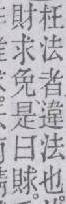 枉法者違法也
財求免是曰賕